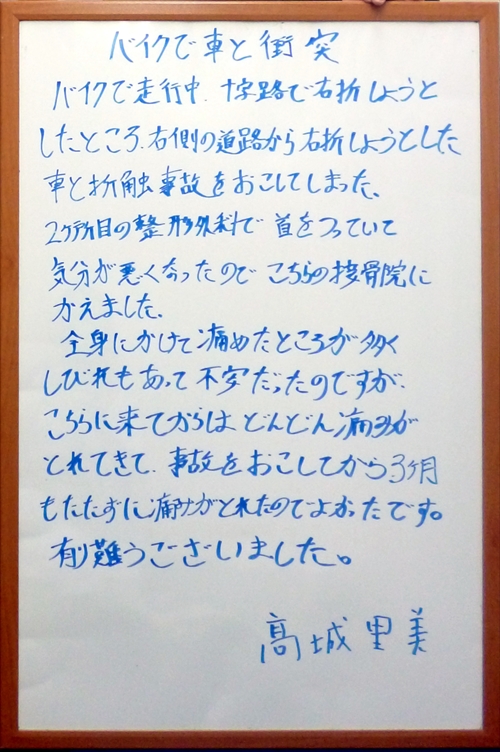 バイクで車と衝突
バイクで走行中、十字路で右折しようと
したところ、右側の道路から右折しようとした
車と折触事故をおこしてしまった、
2ヶ所目の整形外科で首をつっていて
気分が悪くなったのでこちらの接骨院に
かえました、
全身にかけて痛めたところが多く
しびれもあって不安だったのですが、
こちらに来てからはどんどん痛みが
とれてきて、事故をおこしてから3ヶ月
もたたずに痛みがとれたのでよかったです。
有難うございました。
高城里美